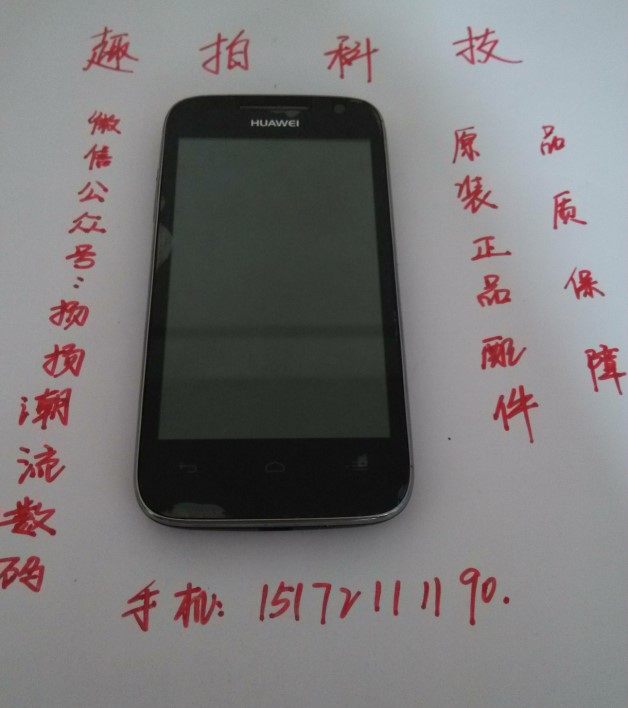 趣拍科技
HUAWEI
微信公众号:扬扬潮流数码
原装正品配件
品质保障
手机:15172111190.